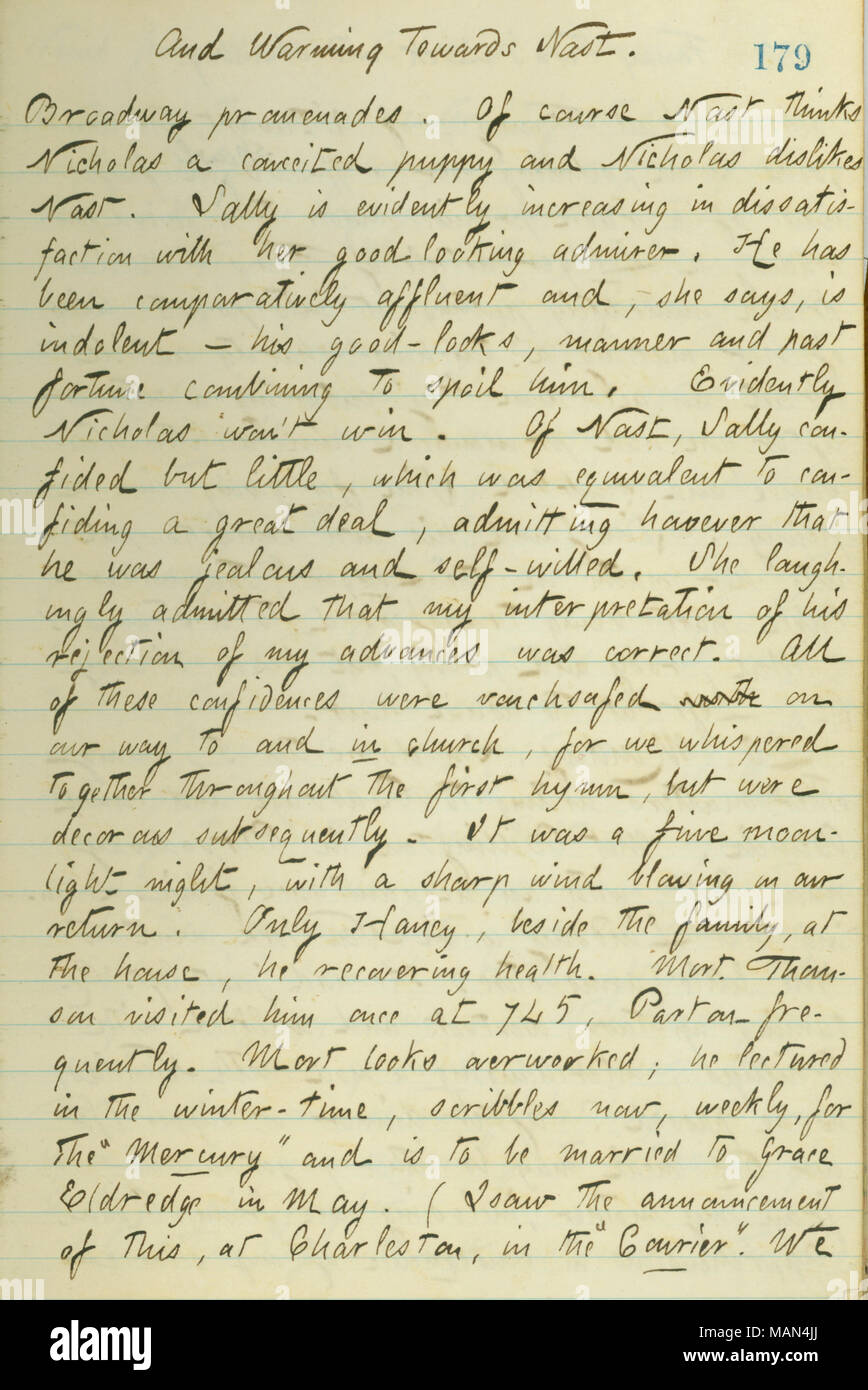 And Warming Towards Nast.
179
Broadway promenades. Of course Nast thinks
Nicholas a conceited puppy and Nicholas dislikes
Nast. Sally is evidently increasing in dissatis-
faction with her good looking admirer. He has
been comparatively affluent and, she says, is
indolent — his good-looks, manner and past
fortune combining to spoil him. Evidently
Nicholas won't win. Of Nast, Sally con-
fided but little, which was equivalent to con-
fiding a great deal, admitting however that
he was jealous and self-willed. She laugh-
ingly admitted that my interpretation of his
rejection of my advances was correct. All
of these confidences were vouchsafed with on
our way to and in church, for we whispered
together throughout the first hymn, but were
decorous subsequently. It was a fine moon-
light night, with a sharp wind blowing on our
return. Only Haney, beside the family, at
the house, he recovering health. Mort. Thom-
son visited him once at 745, Parton fre-
quently. Mort looks overworked; he lectured
in the winter-time, scribbles now, weekly, for
the "Mercury" and is to be married to Grace
Eldredge in May. (I saw the announcement
of this, at Charleston, in the "Courier". We
alamy
Image ID: MAN4JJ
www.alamy.com